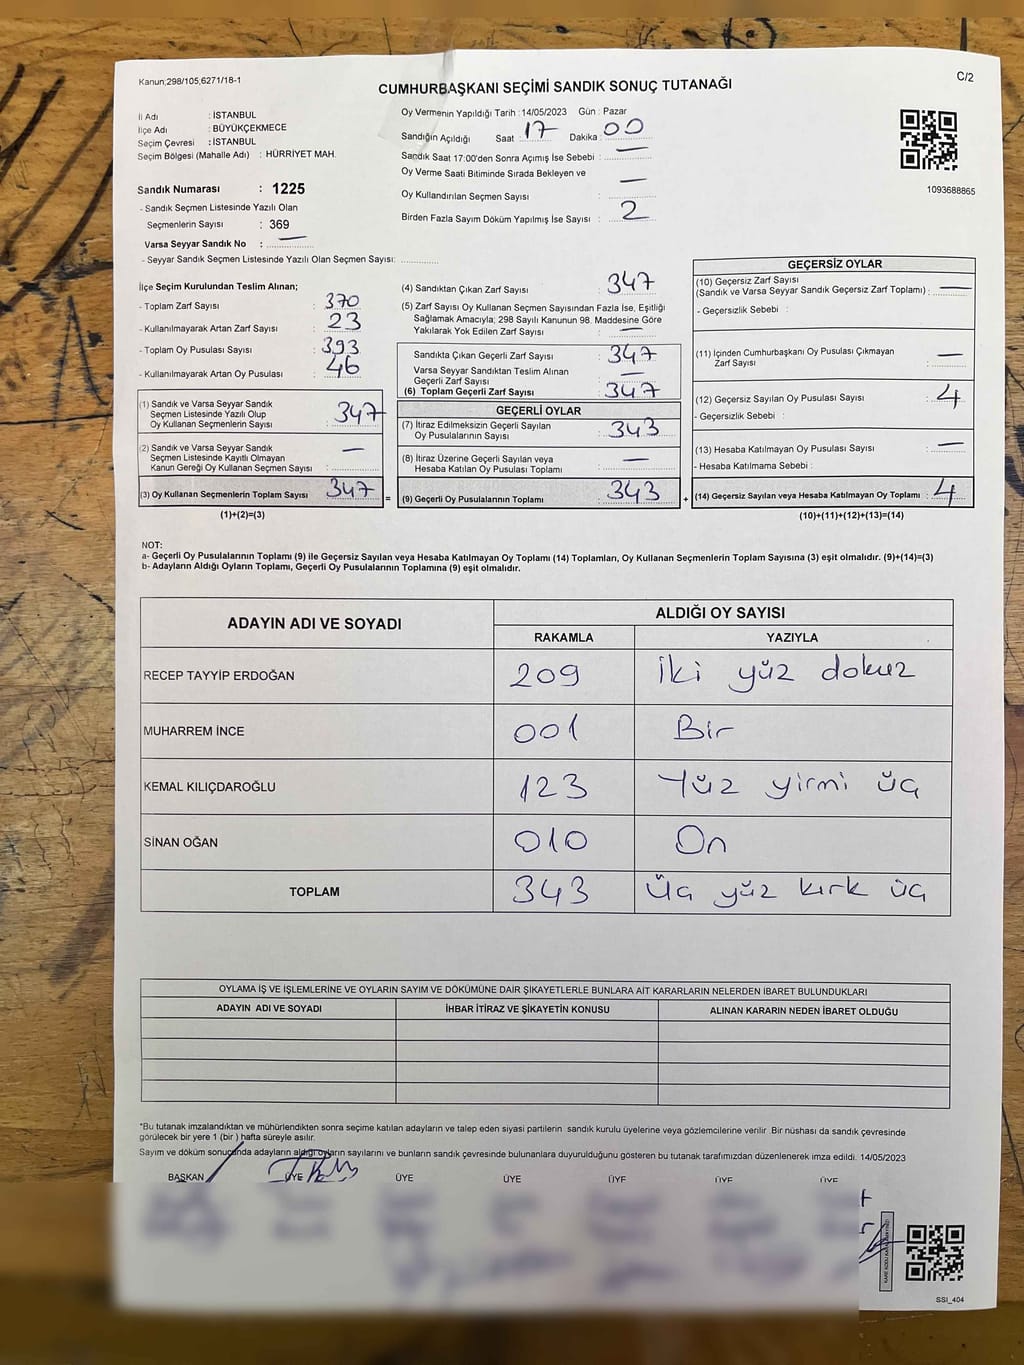 Kanun;298/105,6271/18-1
C/2
CUMHURBAŞKANI SEÇİMİ SANDIK SONUÇ TUTANAĞI
İl Adı : İSTANBUL
İlçe Adı : BÜYÜKÇEKMECE
Seçim Çevresi : İSTANBUL
Seçim Bölgesi (Mahalle Adı) : HÜRRİYET MAH.
Sandık Numarası : 1225
- Sandık Seçmen Listesinde Yazılı Olan
Seçmenlerin Sayısı : 369
Varsa Seyyar Sandık No : —
- Seyyar Sandık Seçmen Listesinde Yazılı Olan Seçmen Sayısı:
Oy Vermenin Yapıldığı Tarih : 14/05/2023 Gün : Pazar
Sandığın Açıldığı Saat : 17 Dakika : 00
Sandık Saat 17:00'den Sonra Açımış İse Sebebi : —
Oy Verme Saati Bitiminde Sırada Bekleyen ve
Oy Kullandırılan Seçmen Sayısı : —
Birden Fazla Sayım Döküm Yapılmış İse Sayısı : 2
1093688865
İlçe Seçim Kurulundan Teslim Alınan;
- Toplam Zarf Sayısı : 370
- Kullanılmayarak Artan Zarf Sayısı : 23
- Toplam Oy Pusulası Sayısı : 393
- Kullanılmayarak Artan Oy Pusulası : 46
(1) Sandık ve Varsa Seyyar Sandık
Seçmen Listesinde Yazılı Olup
Oy Kullanan Seçmenlerin Sayısı : 347
(2) Sandık ve Varsa Seyyar Sandık
Seçmen Listesinde Kayıtlı Olmayan
Kanun Gereği Oy Kullanan Seçmen Sayısı : —
(3) Oy Kullanan Seçmenlerin Toplam Sayısı : 347 =
(1)+(2)=(3)
(4) Sandıktan Çıkan Zarf Sayısı : 347
(5) Zarf Sayısı Oy Kullanan Seçmen Sayısından Fazla İse, Eşitliği
Sağlamak Amacıyla; 298 Sayılı Kanunun 98. Maddesine Göre
Yakılarak Yok Edilen Zarf Sayısı : —
Sandıkta Çıkan Geçerli Zarf Sayısı : 347
Varsa Seyyar Sandıktan Teslim Alınan
Geçerli Zarf Sayısı : —
(6) Toplam Geçerli Zarf Sayısı : 347
GEÇERLİ OYLAR
(7) İtiraz Edilmeksizin Geçerli Sayılan
Oy Pusulalarının Sayısı : 343
(8) İtiraz Üzerine Geçerli Sayılan veya
Hesaba Katılan Oy Pusulası Toplamı : —
(9) Geçerli Oy Pusulalarının Toplamı : 343 +
GEÇERSİZ OYLAR
(10) Geçersiz Zarf Sayısı
(Sandık ve Varsa Seyyar Sandık Geçersiz Zarf Toplamı) : —
- Geçersizlik Sebebi :
(11) İçinden Cumhurbaşkanı Oy Pusulası Çıkmayan
Zarf Sayısı : —
(12) Geçersiz Sayılan Oy Pusulası Sayısı : 4
- Geçersizlik Sebebi :
(13) Hesaba Katılmayan Oy Pusulası Sayısı : —
- Hesaba Katılmama Sebebi :
(14) Geçersiz Sayılan veya Hesaba Katılmayan Oy Toplamı : 4
(10)+(11)+(12)+(13)=(14)
NOT:
a- Geçerli Oy Pusulalarının Toplamı (9) ile Geçersiz Sayılan veya Hesaba Katılmayan Oy Toplamı (14) Toplamları, Oy Kullanan Seçmenlerin Toplam Sayısına (3) eşit olmalıdır. (9)+(14)=(3)
b- Adayların Aldığı Oyların Toplamı, Geçerli Oy Pusulalarının Toplamına (9) eşit olmalıdır.
ADAYIN ADI VE SOYADI
ALDIĞI OY SAYISI
RAKAMLA YAZIYLA
RECEP TAYYİP ERDOĞAN 209 İki yüz dokuz
MUHARREM İNCE 001 Bir
KEMAL KILIÇDAROĞLU 123 Yüz yirmi üç
SİNAN OĞAN 010 On
TOPLAM 343 Üç yüz kırk üç
OYLAMA İŞ VE İŞLEMLERİNE VE OYLARIN SAYIM VE DÖKÜMÜNE DAİR ŞİKAYETLERLE BUNLARA AİT KARARLARIN NELERDEN İBARET BULUNDUKLARI
ADAYIN ADI VE SOYADI İHBAR İTİRAZ VE ŞİKAYETİN KONUSU ALINAN KARARIN NEDEN İBARET OLDUĞU
*Bu tutanak imzalandıktan ve mühürlendikten sonra seçime katılan adayların ve talep eden siyasi partilerin sandık kurulu üyelerine veya gözlemcilerine verilir. Bir nüshası da sandık çevresinde
görülecek bir yere 1 (bir ) hafta süreyle asılır.
Sayım ve döküm sonucunda adayların aldığı oyların sayılarını ve bunların sandık çevresinde bulunanlara duyurulduğunu gösteren bu tutanak tarafımızdan düzenlenerek imza edildi. 14/05/2023
BAŞKAN ÜYE ÜYE ÜYE ÜYE ÜYE ÜYE
SSI_404